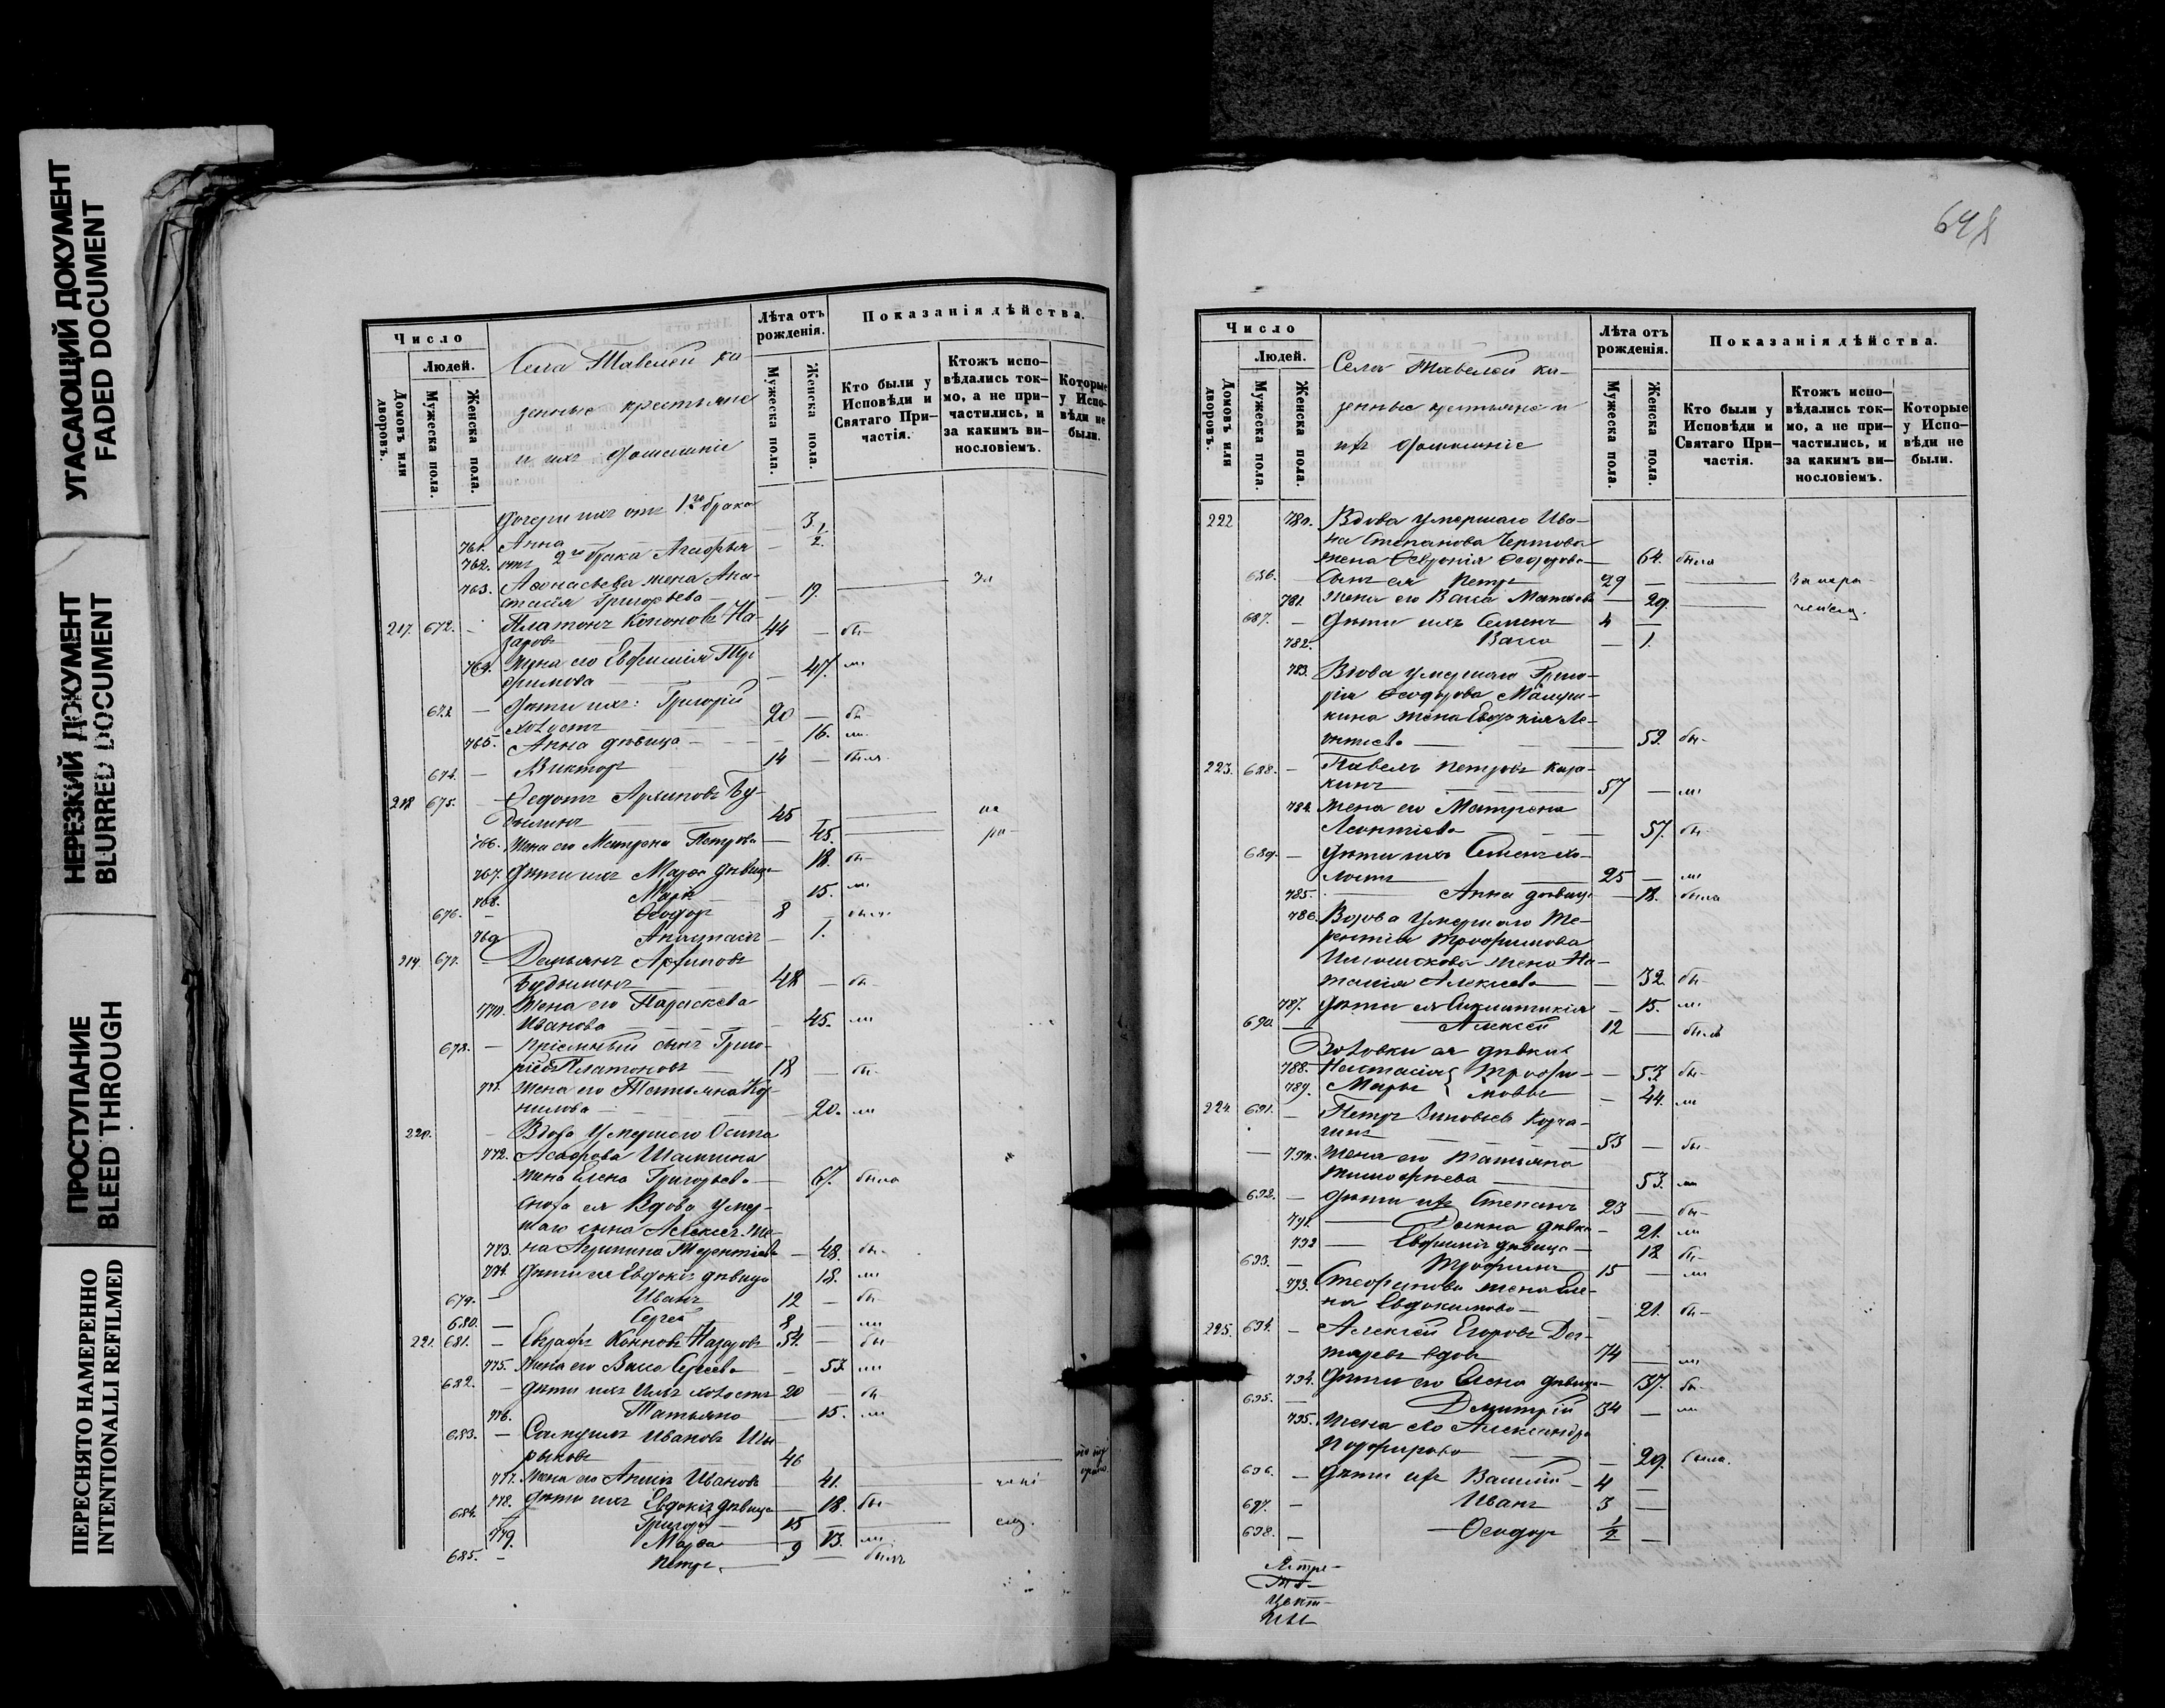 УГАСАЮЩИЙ ДОКУМЕНТ
FADED DOCUMENT
НЕРЕЗКИЙ ДОКУМЕНТ
BLURRED DOCUMENT
ПРОСТУПАНИЕ
BLEED THROUGH
ПЕРЕСНЯТО НАМЕРЕННО
INTENTIONALLI REFILMED
Число
Людей.
Домовъ или дворовъ.
Мужеска пола.
Женска пола.
Села Тавелей ка-
зенные крестьяне
и ихъ домашніе
Лѣта отъ рожденія.
Мужеска пола.
Женска пола.
Показанія дѣйства.
Кто были у Исповѣди и Святаго При-частія.
Ктожъ испо-вѣдались ток-мо, а не при-частились, и за какимъ ви-нословіемъ.
Которые у Испо-вѣди не были.
дочери ихъ отъ 1го брака
761. Анна — 3
762. отъ 2го брака Агафья — 1/2
763. Афонасьева жена Ана-
стасія Григорьева — 19.
217. 672. Платонъ Кононовъ На-
заровъ 44 — бы-
764. Жена его Евфимія Тро-
фимова — 47. ли
дѣти ихъ: Григорій
холостъ 20 — бы-
765. Анна дѣвица — 16. ли
674. Викторъ 14 — были
218 675. Федотъ Архиповъ Бу-
дылинъ 45
766. Жена его Матрона Петрова — 45.
767. дѣти ихъ Марѳа дѣвица 18. бы-
768. Марія 15. ли
676. Ѳеодоръ 8
769 Анастасія — 1.
677. Демьянъ Архиповъ
Будылинъ 48 — бы-
770. Жена его Параскева
Иванова — 45. ли
678. пріемный сынъ Григо-
рій Платоновъ 18 — бы-
771. Жена его Татьяна Кор-
нилова — 20. ли
220. Вдова умершаго Осипа
772. Жена Елена Григорьева — 67. была
сноха ея Вдова умер-
шаго сына Алексея же-
773. на Агрипина Терентьева — 48. бы-
774. дѣти ея Евдокія дѣвица 18. ли
679. Иванъ 12 — бы-
680. Сергей 8 — ли
221. 681. Евграфъ Кононовъ Назаровъ 54. — бы-
775. Жена его Васса Сергеева — 53 ли
682. дѣти ихъ Илья холостъ 20 — бы-
776. Татьяна — 15. ли
683. Самуилъ Ивановъ
46
777. Жена его Анна Иванова — 41.
778. дѣти ихъ Евдокія дѣвица — 18 бы-
684. Григорій 15
779. Марѳа 13. ли
685. Петръ 9 — былъ
648
Число
Людей.
Домовъ или дворовъ.
Мужеска пола.
Женска пола.
Села Тавелей ка-
зенные крестьяне и
ихъ домашніе
Лѣта отъ рожденія.
Мужеска пола.
Женска пола.
Показанія дѣйства.
Кто были у Исповѣди и Святаго При-частія.
Ктожъ испо-вѣдались ток-мо, а не при-частились, и за какимъ ви-нословіемъ.
Которые у Испо-вѣди не были.
222 780. Вдова умершаго Ива-
на Степанова Чертова
жена Ѳевронія Ѳеодорова — 64. была
686. Сынъ ея Петръ 29 —
781. Жена его Васса Матвеева — 29.
687. — дѣти ихъ Семенъ 4 —
782. Васса — 1.
783. Вдова умершаго Григо-
рія Ѳеодорова
жена Евдокія Ле-
онтьева — 52. бы-
223. 688. — Павелъ Петровъ Кара-
кинъ 57 — ли
784. Жена его Матрона
Леонтьева — 57. бы-
689. — дѣти ихъ Семенъ хо-
лостъ 25 — ли
785. Анна дѣвица — 18. была
786. Вдова умершаго Те-
рентія Трофимова
жена На-
талія Алексеева — 32. бы-
787. — 15. ли
690. Алексей 12 — былъ
Золовки ея дѣвки:
788. Настасія } Трофи- — 53. бы-
789. Марья } мовы — 44. ли
224. 691. — Петръ Зиновьевъ Корча-
гинъ 53 — бы-
790. Жена его Татьяна
Тимофеева 53. ли
692. — дѣти ихъ Степанъ 23 — бы-
791. Домна дѣвка — 21. ли
792 — Евфимія дѣвица — 18 бы-
693. — Трофимъ 15 — ли
793. Степанова жена Еле-
на Евдокимова — 21. бы-
225. 694. — Алексей Егоровъ Дег-
тяревъ вдовъ 74 — ли
794. дѣти его Елена дѣвица — 37. бы-
695. — Дмитрій 34 — ли
795. Жена его Александра
Порфирова — 29. была.
696. — дѣти ихъ Василій 4 —
697. — Иванъ 3 —
698. — Ѳеодоръ 1/2 —